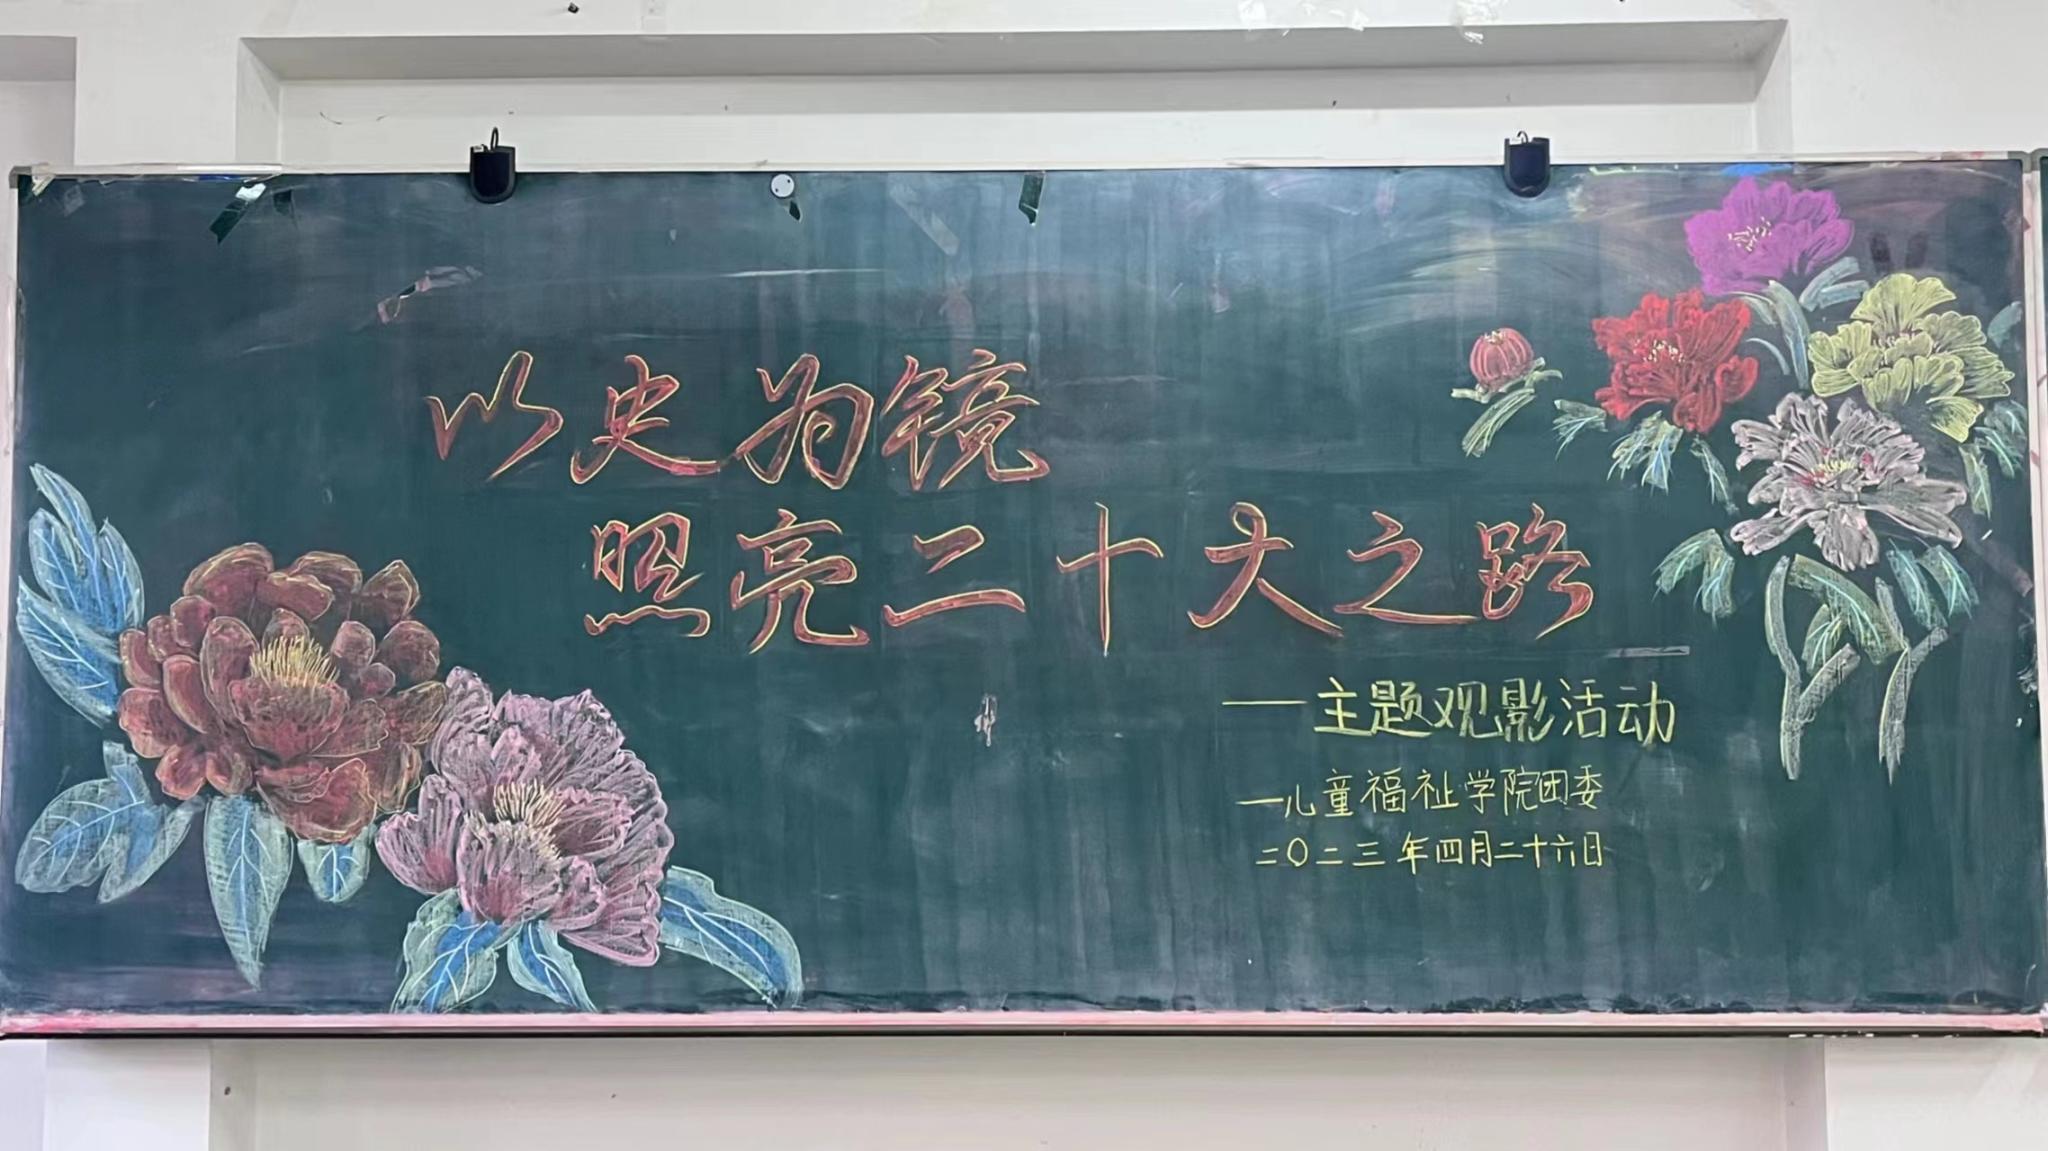 以史为镜
照亮二十大之路
——主题观影活动
—儿童福祉学院团委
二〇二三年四月二十六日